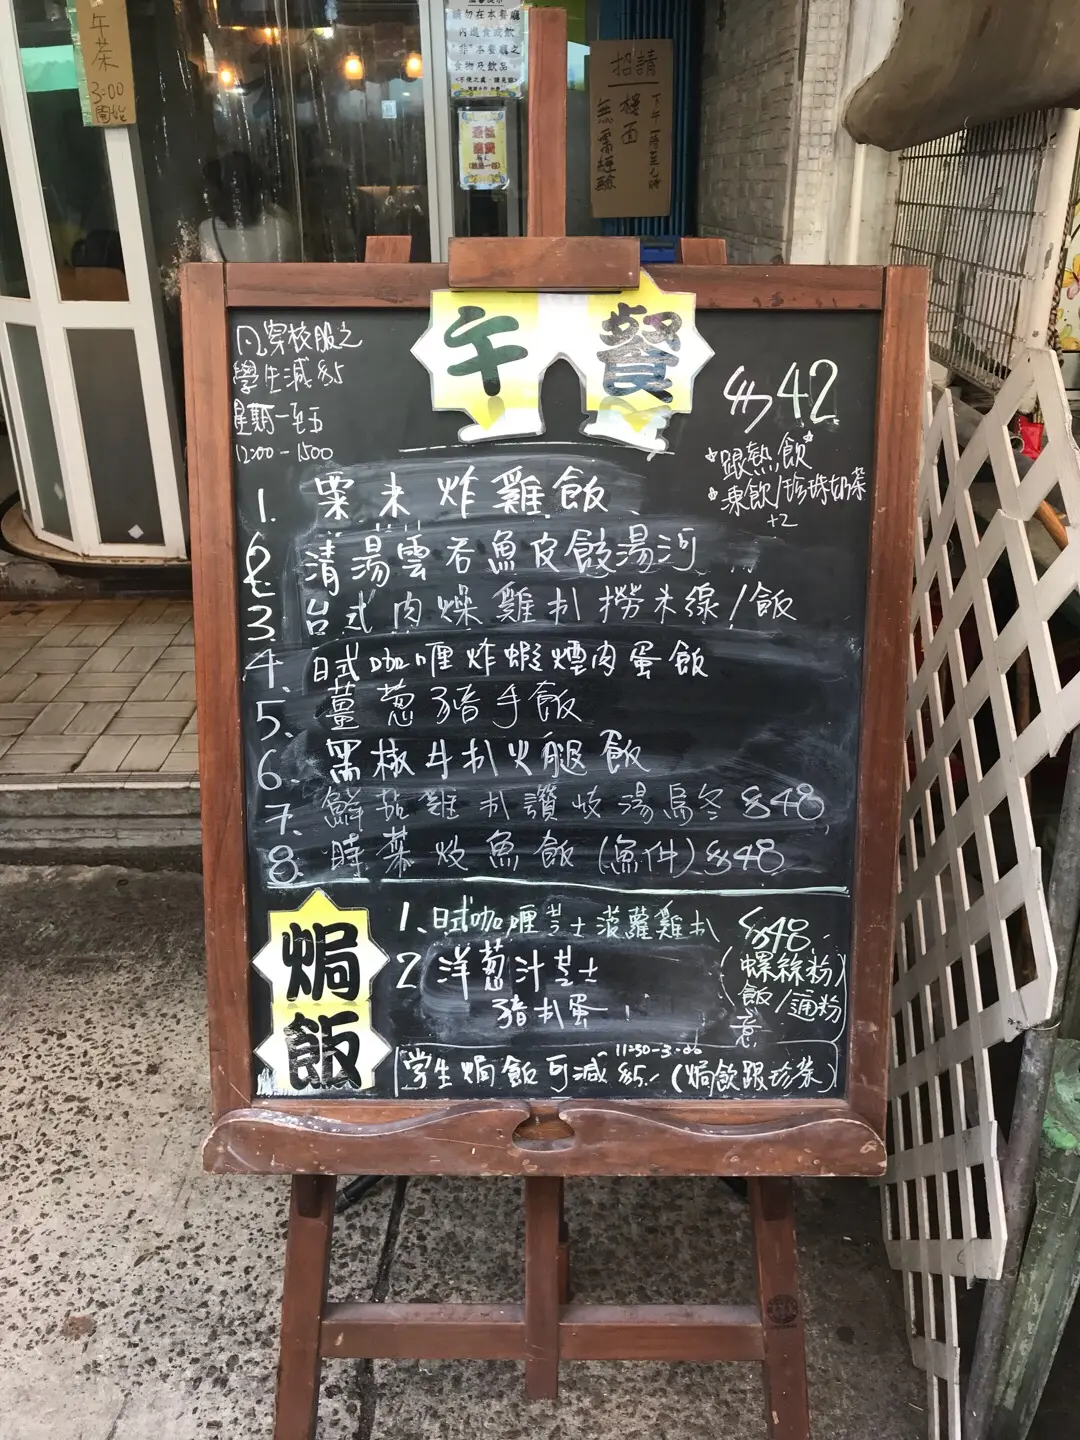 午茶
3:00
開始
請勿在本餐廳
內進食或飲
"非"本餐廳之
食物及飲品
招請
樓面
無需經驗
午餐
凡穿校服之
學生減$5
星期一至五
12:00-1500
$42
*跟熱飲*
*凍飲/珍珠奶茶
+2
1. 粟米炸雞飯
2. 清湯雲吞魚皮餃湯河
3. 台式肉燥雞扒撈米線/飯
4. 日式咖喱炸蝦煙肉蛋飯
5. 薑蔥豬手飯
6. 黑椒牛扒火腿飯
7. 鮮茄雞扒讚岐湯烏冬 $48
8. 時菜炆魚飯(魚件) $48
焗飯
1、日式咖喱芝士菠蘿雞扒 $48
2 洋蔥汁芝士
豬扒蛋
(螺絲粉)
飯/通粉
意
11:30-3:00
学生焗飯可減$5.(焗飲跟珍茶)